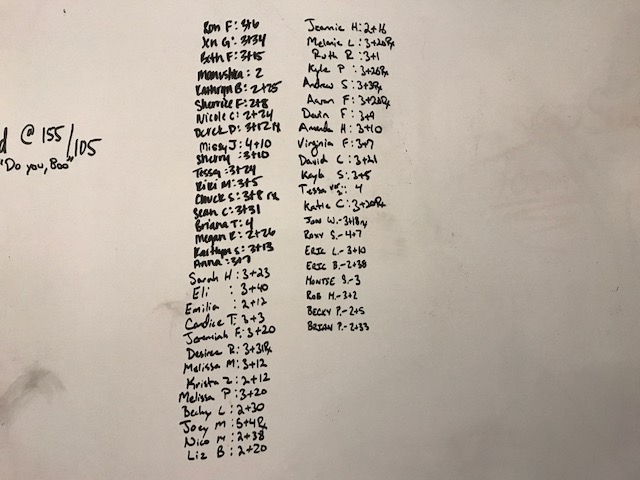 d @ 155/105
"Do you, Boo"
Ron F: 3+6
Xn G: 3+34
Beth F: 3+15
Manushka: 2
Kathryn B: 2+25
Sherrice F: 2+8
Nicole C: 2+24
Derek D: 3+12 rx
Missy J: 4+10
Sherry: 3+10
Tessa: 3+24
Kiki M: 3+5
Chuck S: 3+8 rx
Sean C: 3+31
Briana T: 4
Megan E: 2+26
Kaitlyn S: 3+13
Anna: 3+7
Sarah H: 3+23
Eli : 3+40
Emilia : 2+12
Candice T: 3+3
Jeremiah F: 3+20
Desiree R: 3+31Rx
Melissa M: 3+12
Krista Z: 2+12
Melissa P: 3+20
Becky L: 2+30
Joey M: 5+4Rx
Nico M: 2+38
Liz B: 2+20
Jeannie H: 2+16
Melanie L: 3+20Rx
Ruth R: 3+1
Kyle P: 3+20Rx
Andrew S: 3+3Rx
Aaron F: 3+20Rx
Davin F: 3+9
Amanda H: 3+10
Virginia F: 3+7
David C: 3+21
Kayla S: 3+5
Tessa : 4
Katie C: 3+20Rx
Jon W.- 3+18rx
Roxy S.- 4+7
Eric L.- 3+10
Eric B.- 2+38
Montse S.- 3
Rob M.- 3+2
Becky P.- 2+5
Brian P.- 2+33